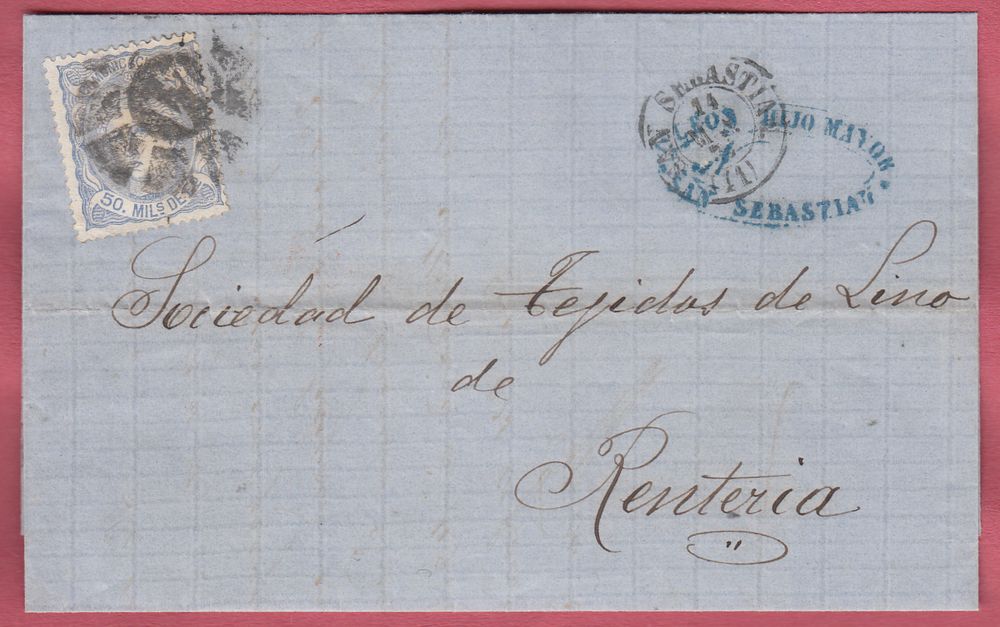 50. MILS DE
SAN SEBASTIAN
14
(11)
HIJO MAYOR
SAN SEBASTIAN
Sociedád de Tejidos de Lino
de
Renteria
"